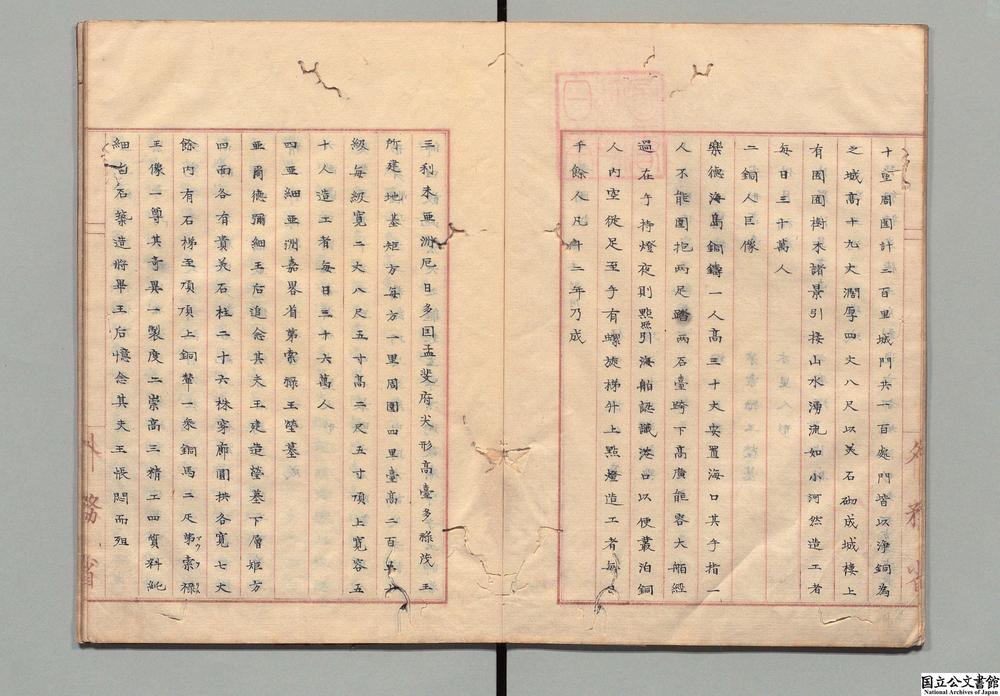 十重周圍計三百里城門共一百處門皆以淨銅為
之城高十九丈濶厚四丈八尺以美石砌成城樓上
有園囿樹木諸景引接山水湧流如小河然造工者
每日三十萬人
二銅人巨像
樂德海島銅鑄一人高三十丈安置海口其手指一
人不能圍抱兩足踏兩石臺跨下高廣能容大舶經
過右手持燈夜則點照引海舶認識港口以便叢泊銅
人內空從足至手有螺旋梯升上點燈造工者每日
千餘人凡十二年乃成
三利未亞洲厄日多囯孟斐府尖形高臺多祿茂王
所建地基矩方每方一里周圍四里臺高二百五十
級每級寬二丈八尺五寸高二尺五寸頂上寬容五
十人造工者每日三十六萬人
四亞細亞洲嘉畧省茅索祿王塋墓
亞爾德彌細王后追念其夫王建造塋墓下層矩方
四面各有貴美石柱二十六株穿廊圓拱各寬七丈
餘內有石梯至頂頂上銅輦一乘銅馬二疋茅索祿
王像一尊其奇異一製度二崇高三精工四質料純
細白石築造將畢王后憶念其夫王悵悶而殂
外務省
外務省
国立公文書館
National Archives of Japan